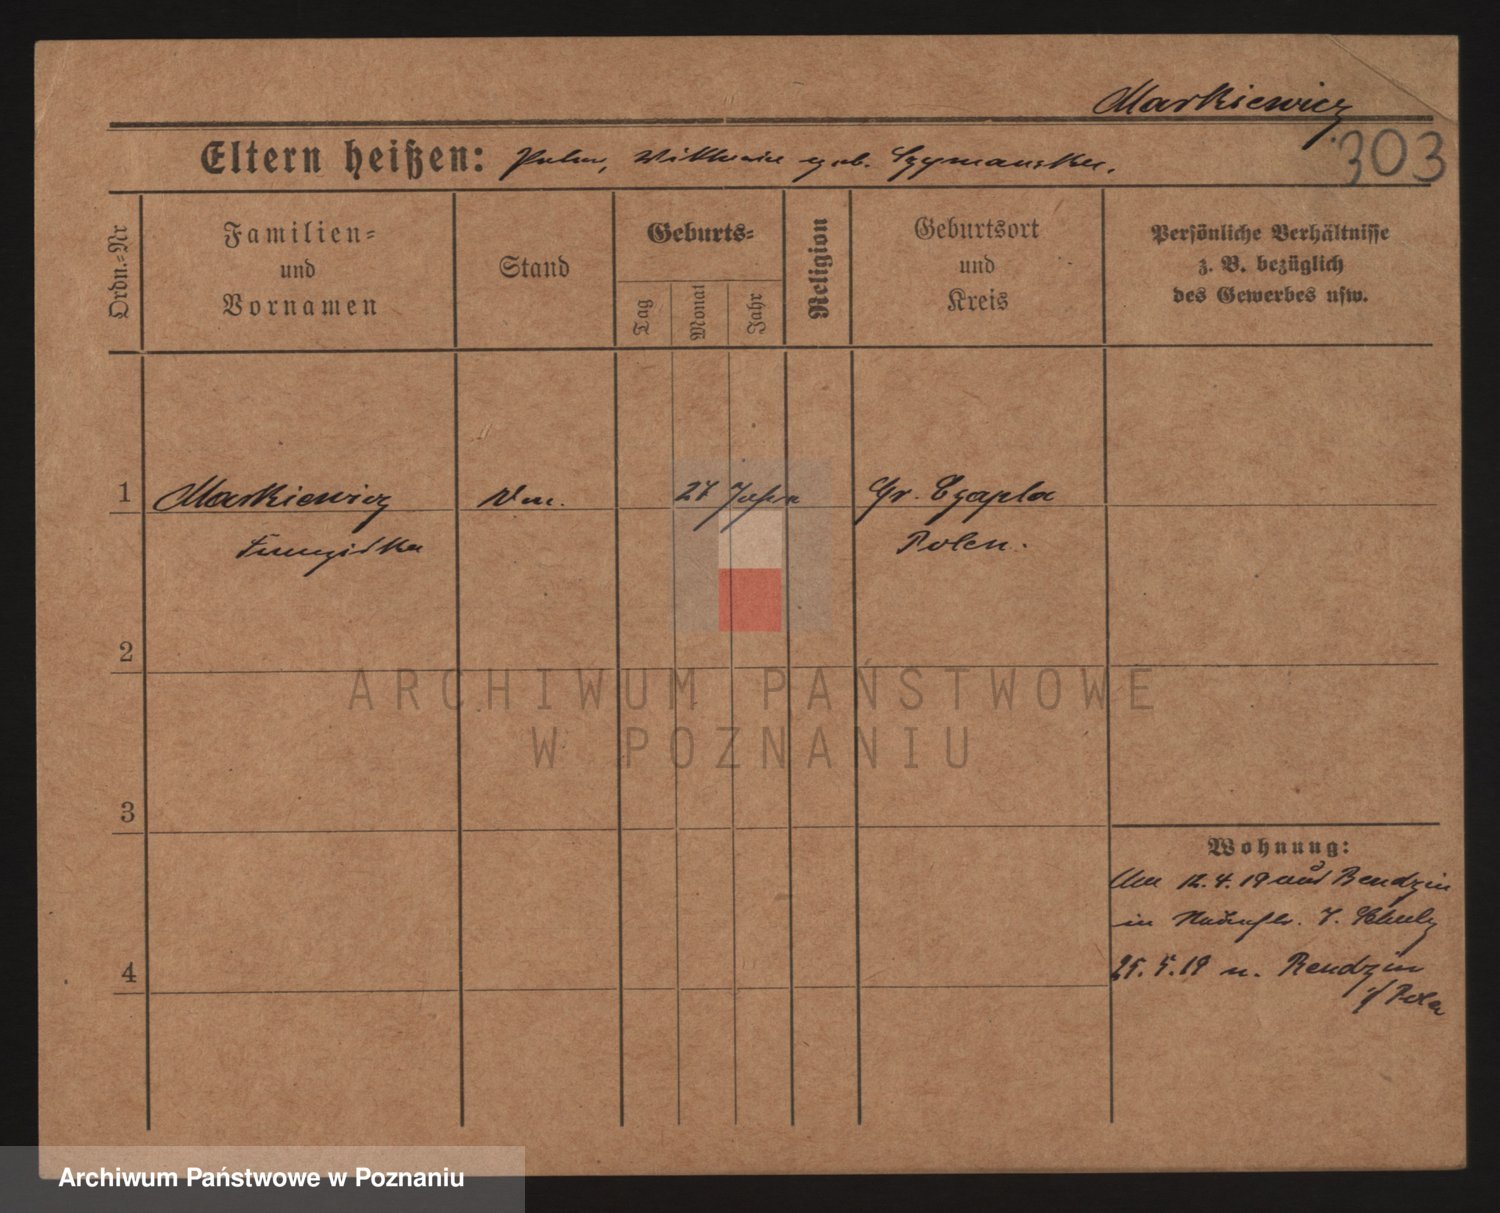 Markiewicz
303
Eltern heißen: geb. Szymanska.
Ordn.-Nr
Familien-
und
Vornamen
Stand
Geburts-
Tag
Monat
Jahr
Religion
Geburtsort
und
Kreis
Persönliche Verhältnisse
z. B. bezüglich
des Gewerbes usw.
1
Markiewicz
27 Jahre
Gr. Czapla
Polen.
2
ARCHIWUM PAŃSTWOWE
W POZNANIU
3
Wohnung:
12.4.19 aus Bendzin
in
4
25.5.19 n. Bendzin
i/Polen
Archiwum Państwowe w Poznaniu